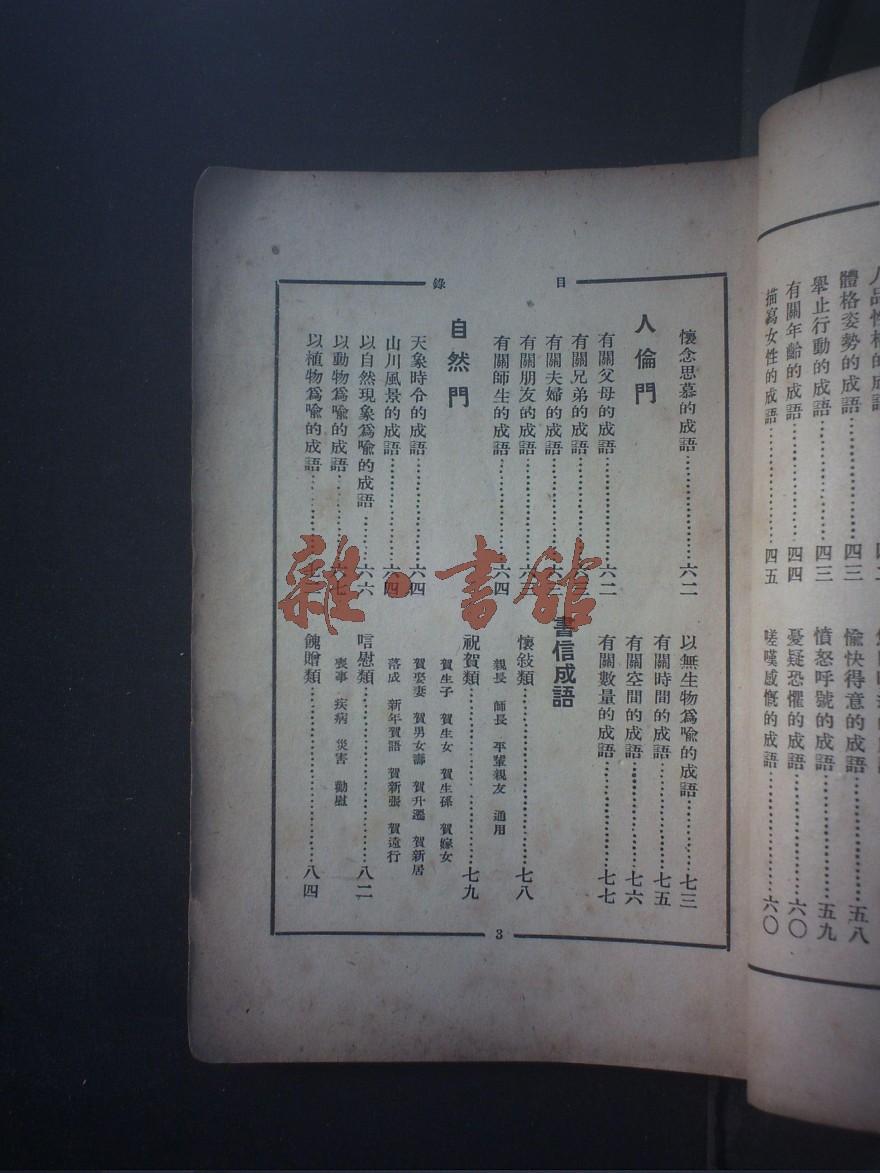 目錄
懷念思慕的成語……………六二
人倫門
有關父母的成語……………六二
有關兄弟的成語……………
有關夫婦的成語……………
有關朋友的成語……………六三
有關師生的成語……………六四
自然門
天象時令的成語……………六四
山川風景的成語……………六四
以自然現象爲喩的成語……六六
以動物爲喩的成語…………六七
以植物爲喩的成語…………
以無生物爲喩的成語………七三
有關時間的成語……………七五
有關空間的成語……………七六
有關數量的成語……………七七
書信成語
懷敍類………………………七八
親長 師長 平輩親友 通用
祝賀類………………………七九
賀生子 賀生女 賀生孫 賀嫁女
賀娶妻 賀男女壽 賀升遷 賀新居
落成 新年賀語 賀新張 賀遠行
唁慰類………………………八二
喪事 疾病 災害 勸慰
餽贈類………………………八四
3
體格姿勢的成語……………四三
舉止行動的成語……………四三
有關年齡的成語……………四四
描寫女性的成語……………四五
愉快得意的成語……………五八
憤怒呼號的成語……………五九
憂疑恐懼的成語……………六〇
嗟嘆感慨的成語……………六〇
雜·書館